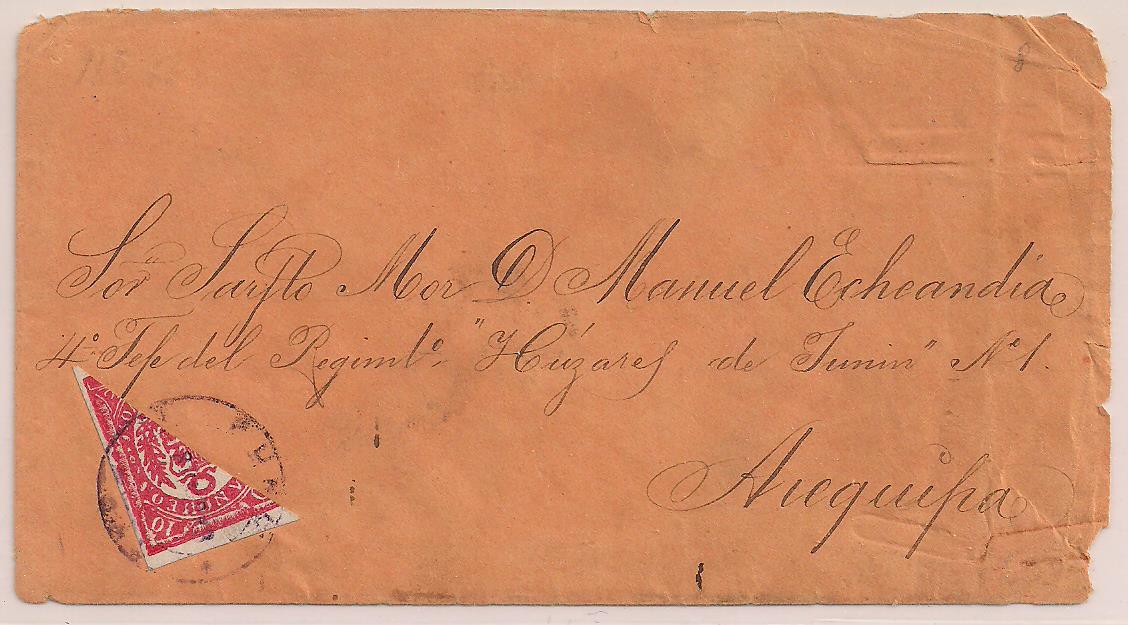 Sor Sarjto Mor D. Manuel Echeandia
4º Jefe del Regimto. "Húzares de Junin" Nº 1.
Arequipa
10
ANCHEO